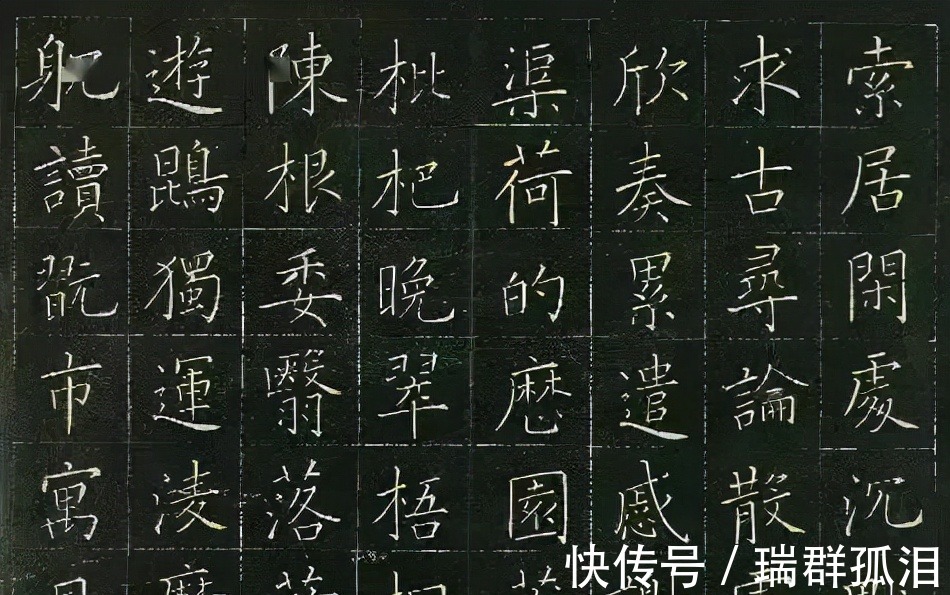 索居閑處沉
求古尋論散
欣奏累遣慼
渠荷的歷園
枇杷晚翠梧
陳根委翳落
遊鵾獨運淩
躭讀翫市寓
快传号 / 瑞群孤泪